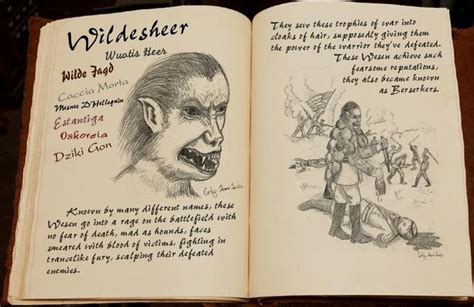 Wildesheer
Wuotis Heer
Wilde Jagd
Caccia Morta
Mesnee D'Hellequin
Estantiga
Oskoreia
Dziki Gon
Known by many different names, these
Wesen go into a rage on the battlefield with
no fear of death, mad as hounds, faces
smeared with blood of victims, fighting in
trancelike fury, scalping their defeated
enemies.
They sew these trophies of war into
cloaks of hair, supposedly giving them
the power of the warrior they've defeated.
These Wesen achieve such
fearsome reputations,
they also became known
as Berserkers.